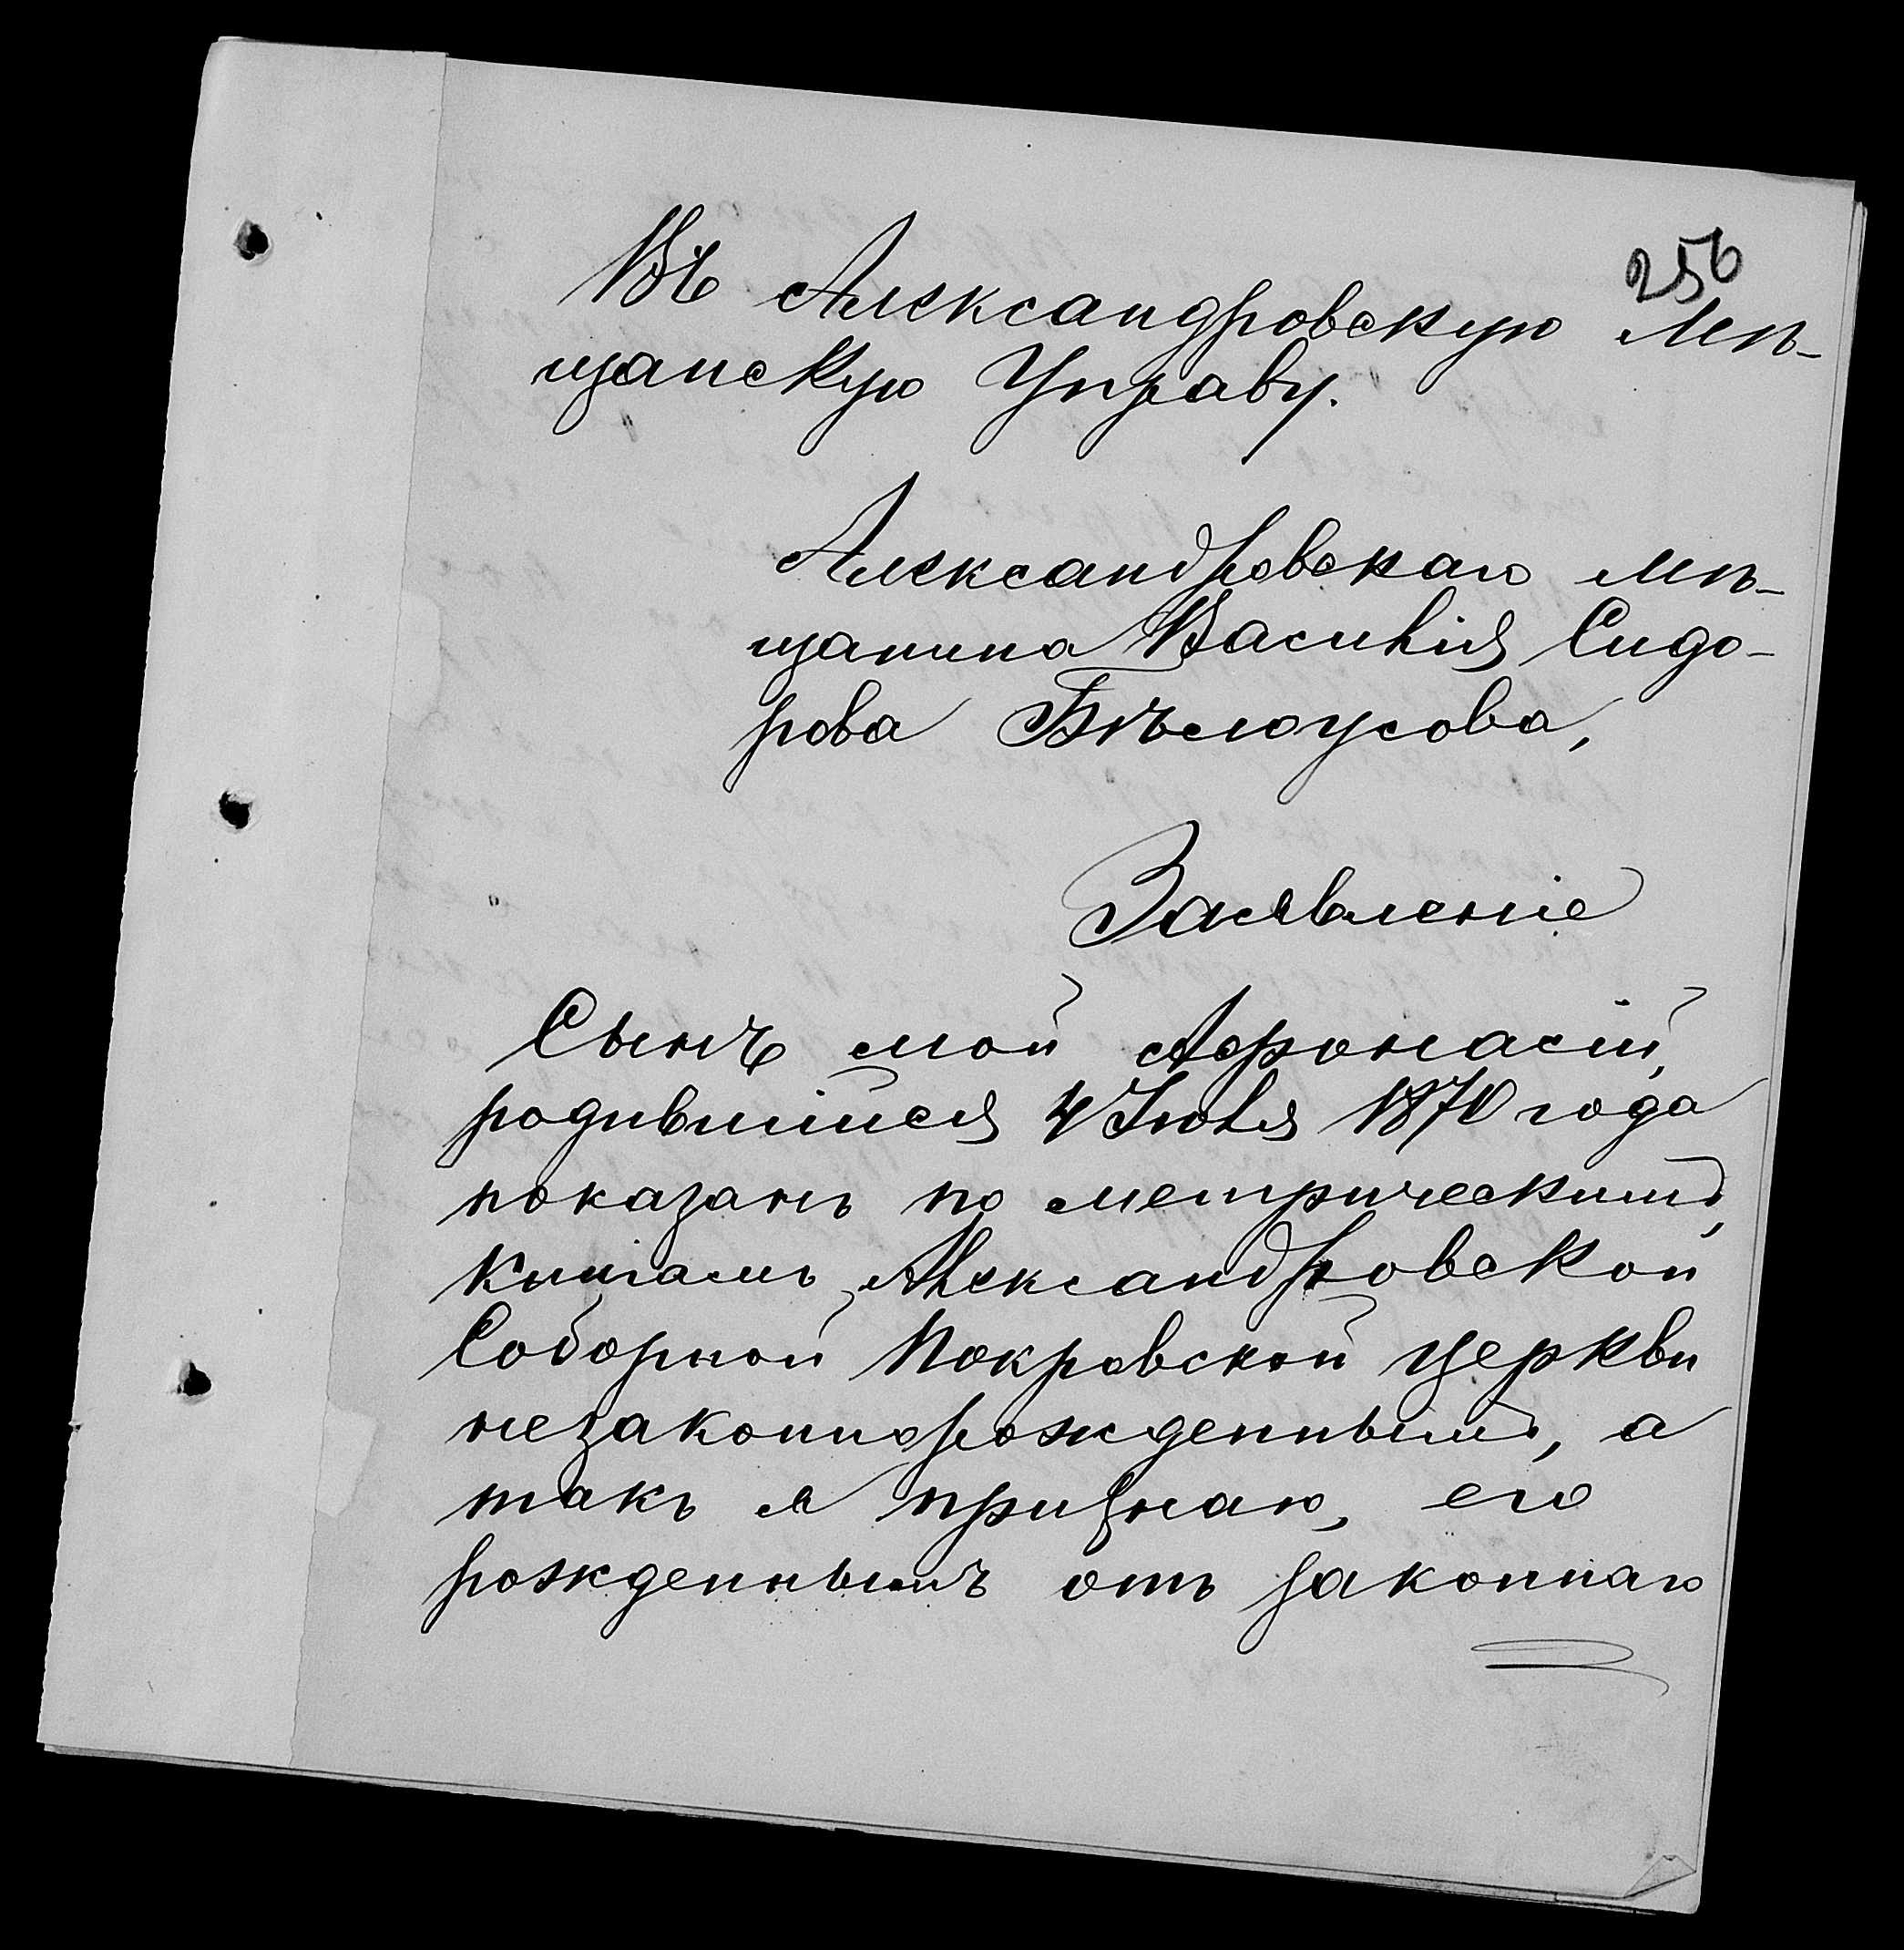 256
Въ Александровскую Мѣ-
щанскую Управу.
Александровскаго мѣ-
щанина Василія Сидо-
рова Бѣлоусова,
Заявленіе
Сынъ мой Афонасій,
родившійся 4 Іюля 1870 года
показанъ по метрическимъ,
книгамъ Александровской
Соборной Покровской церкви
незаконнорожденнымъ, а
такъ я признаю, его
рожденнымъ отъ законнаго